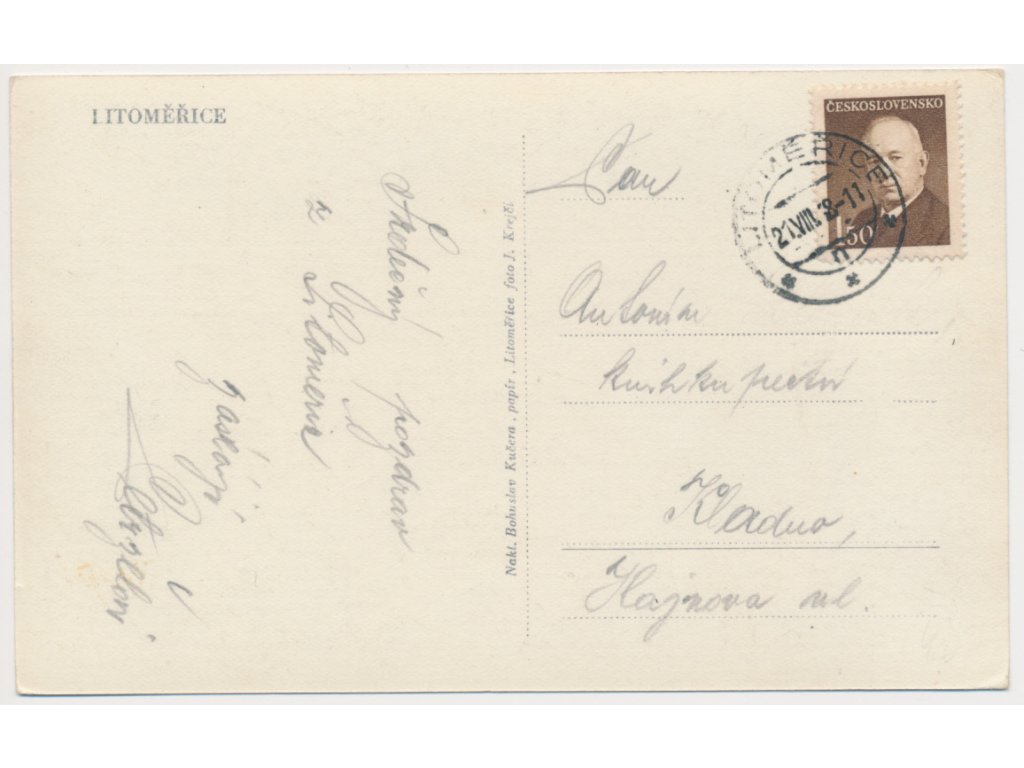 LITOMĚŘICE
Srdečný pozdrav
z Litoměřic
zasílají
Nakl. Bohuslav Kučera, papír, Litoměřice foto J. Krejčí
ČESKOSLOVENSKO
1.50
LITOMĚŘICE
21.VIII. 48-11
Pan
Antonín
knihkupectví
Kladno,
Hajnova ul.